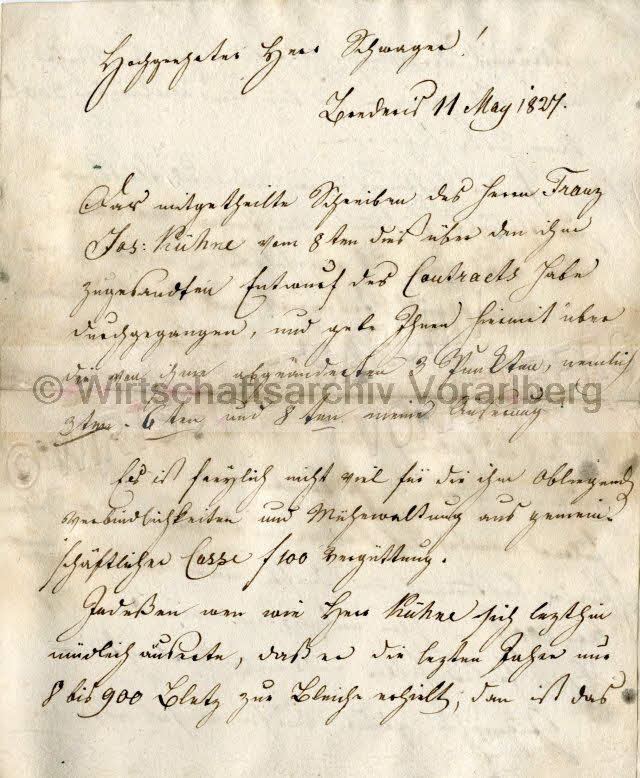 Hochgeehrter Herr Schwager!
Brederis 11 May 1827.
Das mitgetheilte Schreiben des Herrn Franz
Jos: Kühne vom 8ten dieß über den ihm
zugesandten Entwurf des Contracts habe
durchgegangen, und gebe Ihnen hiermit über
die von ihme abgeänderten 3 Punkten, nemlich
© Wirtschaftsarchiv Vorarlberg
3ten. 6ten und 8ten meine Äuserung
Es ist freylich nicht viel für die ihm Obliegend
Verbindlichkeiten und Mühewaltung aus gemein-
schäftlicher Casse f 100 Vergüttung.
Indeßen wen wie Herr Kühne sich lezthin
mündlich äuserte, daß er die lezten Jahre nur
8 bis 900 Bletz zur Bleiche erhielt, dan ist das